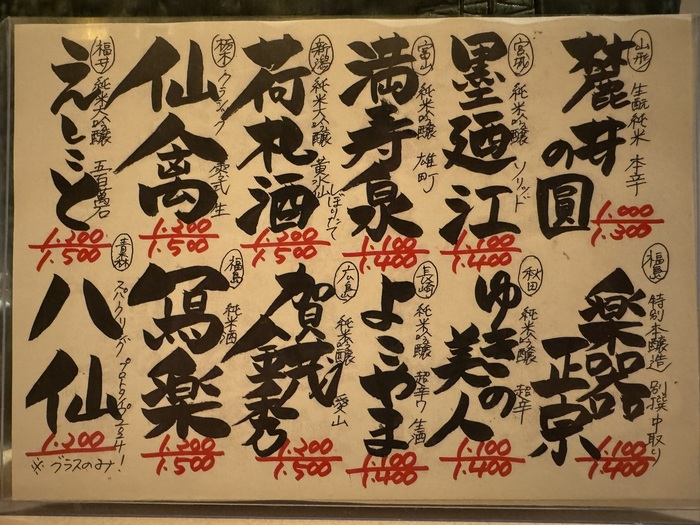 山形
麓井の圓
生酛純米 本辛
1.000
1.300
宮城
墨廼江
純米吟醸 ソリッド
1.100
1.400
富山
満寿泉
純米吟醸 雄町
1.100
1.400
新潟
荷札酒
純米大吟醸 黄水仙 しぼりたて
1.300
1.500
栃木
仙禽
クラシック 生
1.300
1.500
福井
えしこと
純米大吟醸 五百萬石
1.200
1.500
福島
楽器正宗
特別本醸造 別撰 中取り
1.100
1.400
秋田
ゆきの美人
純米吟醸 超辛
1.100
1.400
長崎
よこやま
純米吟醸 超辛7 生酒
1.100
1.400
広島
賀茂金秀
純米吟醸 愛山
1.200
1.500
福島
寫楽
純米酒
1.200
1.500
青森
八仙
スパークリング プロトタイプ
1.200
※グラスのみ